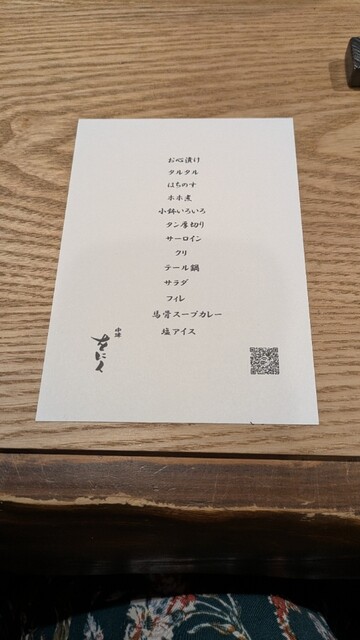 お心漬け
タルタル
はちのす
ホホ煮
小鉢いろいろ
タン厚切り
サーロイン
クリ
テール鍋
サラダ
フィレ
馬骨スープカレー
塩アイス
中津
をにく